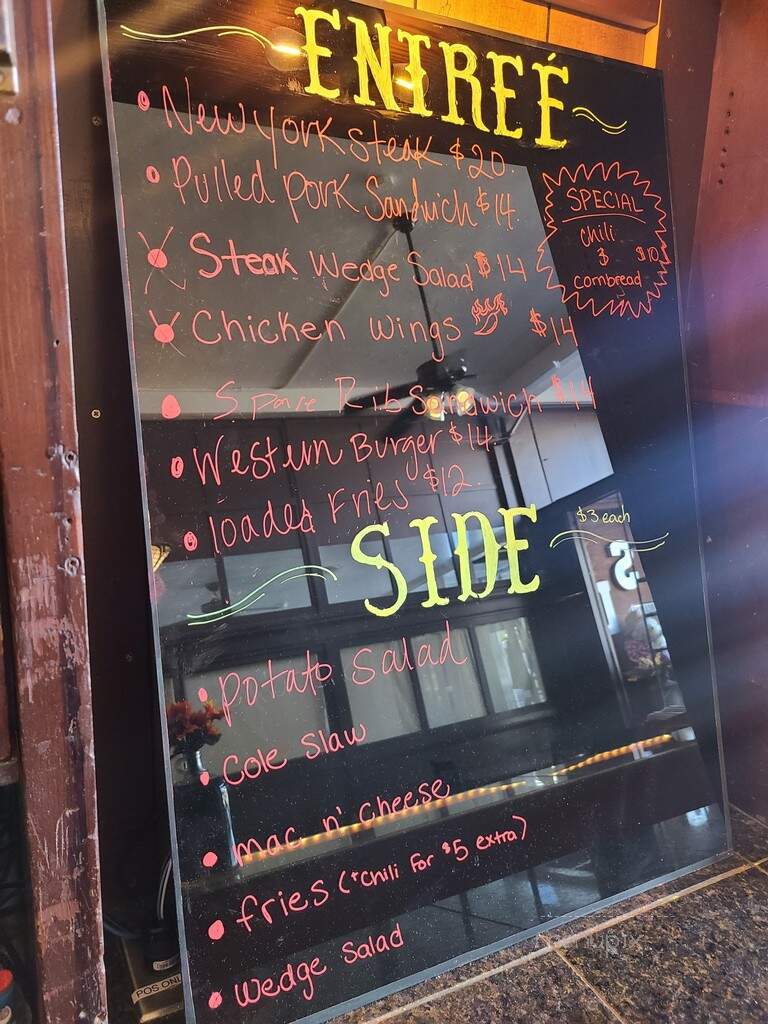 ENTREÉ
New York Steak $20.
Pulled Pork Sandwich $14.
Steak Wedge Salad $14
Chicken Wings $14
Spare Rib Sandwich $14
Western Burger $14
loaded Fries $12.
SPECIAL
Chili
&
cornbread $10
SIDE
$3 each
Potato Salad
Cole Slaw
mac n' cheese
fries (+Chili For $5 extra)
Wedge Salad
S
POS ONL